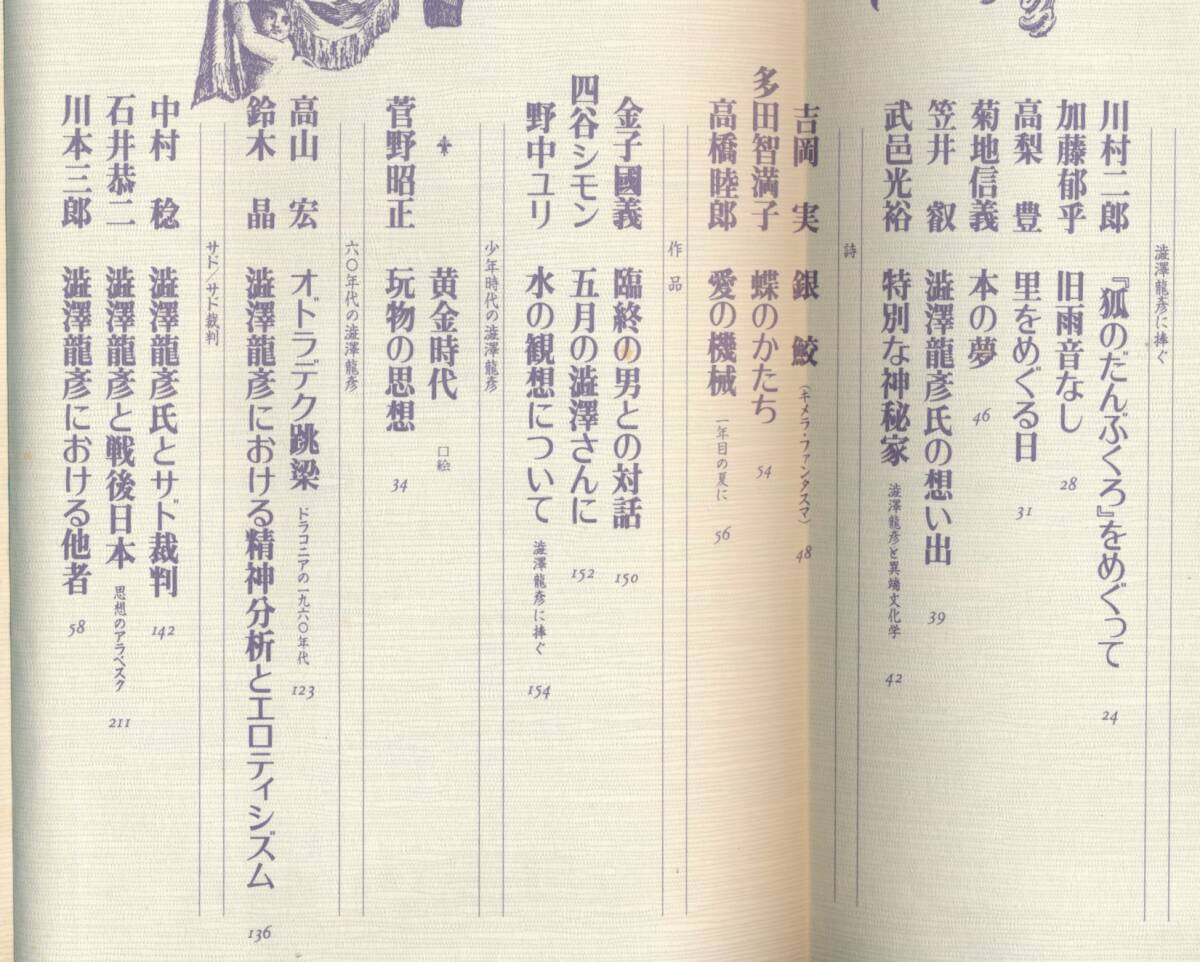 澁澤龍彥に捧ぐ
川村二郎 『狐のだんぶくろ』をめぐって 24
加藤郁乎 旧雨音なし 28
高梨 豊 里をめぐる日 31
菊地信義 本の夢 46
笠井 叡 澁澤龍彥氏の想い出 39
武邑光裕 特別な神秘家 澁澤龍彥と異端文化学 42
詩
吉岡 実 銀鮫 (キメラ・ファンタスマ) 48
多田智満子 蝶のかたち 54
高橋睦郎 愛の機械 一年目の夏に 56
作品
金子國義 臨終の男との対話 150
四谷シモン 五月の澁澤さんに 152
野中ユリ 水の観想について 澁澤龍彥に捧ぐ 154
少年時代の澁澤龍彥
黄金時代 口絵
菅野昭正 玩物の思想 34
六〇年代の澁澤龍彥
高山 宏 オドラデク跳梁 ドラコニアの一九六〇年代 123
鈴木 晶 澁澤龍彥における精神分析とエロティシズム 136
サド/サド裁判
中村 稔 澁澤龍彥氏とサド裁判 142
石井恭二 澁澤龍彥と戦後日本 思想のアラベスク 211
川本三郎 澁澤龍彥における他者 58